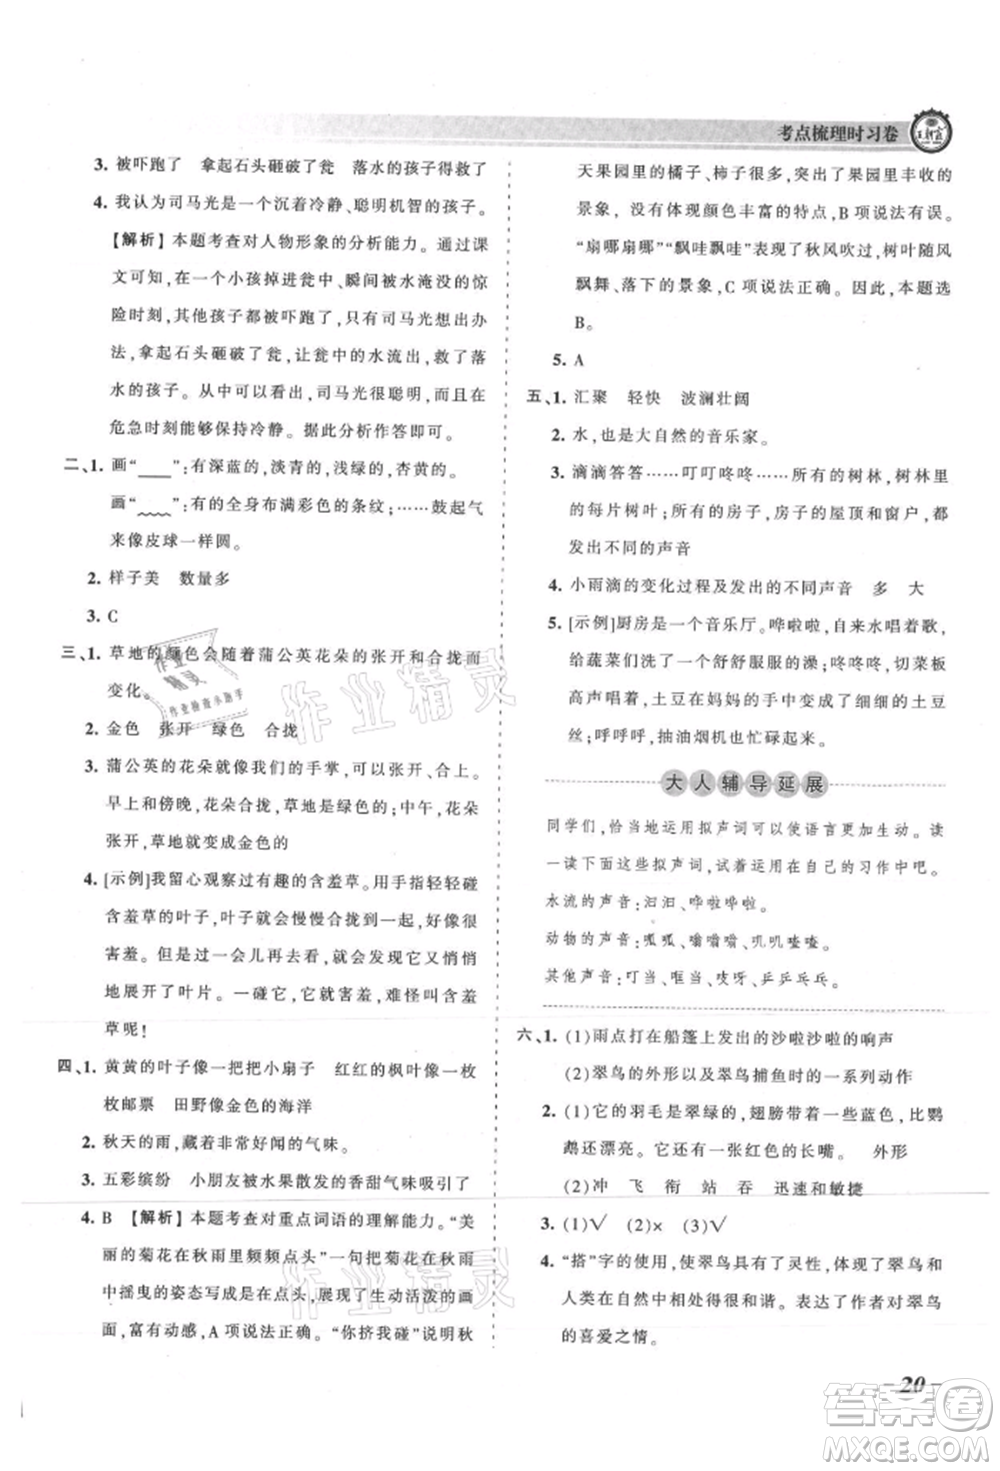 考点梳理时习卷
3. 被吓跑了 拿起石头砸破了瓮 落水的孩子得救了
4. 我认为司马光是一个沉着冷静、聪明机智的孩子。
【解析】本题考查对人物形象的分析能力。通过课
文可知,在一个小孩掉进瓮中,瞬间被水淹没的惊
险时刻,其他孩子都被吓跑了,只有司马光想出办
法,拿起石头砸破了瓮,让瓮中的水流出,救了落
水的孩子。从中可以看出,司马光很聪明,而且在
危急时刻能够保持冷静。据此分析作答即可。
二、1. 画“____”:有深蓝的,淡青的,浅绿的,杏黄的。
画“﹏﹏”:有的全身布满彩色的条纹;……鼓起气
来像皮球一样圆。
2. 样子美 数量多
3. C
三、1. 草地的颜色会随着蒲公英花朵的张开和合拢而
变化。
2. 金色 张开 绿色 合拢
3. 蒲公英的花朵就像我们的手掌,可以张开、合上。
早上和傍晚,花朵合拢,草地是绿色的;中午,花朵
张开,草地就变成金色的了。
4. [示例]我留心观察过有趣的含羞草。用手指轻轻碰
含羞草的叶子,叶子就会慢慢合拢在一起,好像在
害羞。但是过一会儿再去看,你会发现它又悄悄
地展开了叶片。一碰它,它就害羞,难怪叫做含羞
草呢!
四、1. 黄黄的叶子像一把把小扇子 红红的枫叶像一枚
枚邮票 田野像金色的海洋
2. 秋天的雨,藏着非常好闻的气味。
3. 五彩缤纷 小朋友被水果散发的香甜气味吸引了
4. B 【解析】本题考查对重点词语的理解能力。“美
丽的菊花在秋雨里频频点头”一句把菊花在秋雨
中摇曳的姿态写成是在点头,展现了生动活泼的画
面,富有动感,A 项说法正确。“你挤我碰”说明秋
天果园里的橘子、柿子很多,写出了果园里丰收的
景象,没有体现颜色丰富的特点,B 项说法有误。
“扇哪扇哪”“飘哇飘哇”表现了秋风吹过,树叶随风
飘舞、落下的景象,C 项说法正确。故此,本题选
B。
5. A
五、1. 汇聚 轻快 波澜壮阔
2. 水,也是大自然的音乐家。
3. 滴滴答答……叮叮咚咚……所有的树林,树林里
的每片树叶;所有的房子,房子的屋顶和窗户,都
发出不同的声音
4. 小雨滴的变化过程及发出的不同声音 多 大
5. [示例]厨房是一个音乐厅。哗啦啦,水龙头唱着歌,
给蔬菜们洗了一个舒舒服服的澡;咚咚咚,切菜刀
高声唱着,土豆在妈妈的手中变成了细细的土豆
丝;呼呼呼,抽油烟机也忙碌起来。
大人辅导延展
同学们,恰当地运用拟声词可以使语言更加生动。读
一读下面这些拟声词,试着运用到自己的习作中吧。
水流的声音:汩汩、哗啦哗啦。
动物的声音:呱呱、嗡嗡嗡、叽叽喳喳。
其他声音:叮当、哐当、吱呀、乒乒乓乓。
六、1. (1)雨点打在船篷上发出的沙啦沙啦的响声
(2)翠鸟的外形以及翠鸟捕鱼时的一系列动作
2. (1)它的羽毛是翠绿的,翅膀带着一些蓝色,比鹦
鹉还漂亮。它还有一张红色的长嘴。 外形
(2)冲 飞 衔 站 吞 迅速和敏捷
3. (1)√ (2)× (3)√
4. “搭”字的使用,使翠鸟具有了灵性,体现了翠鸟和
人类在自然中相处得很和谐。表达了作者对翠鸟
的喜爱之情。
作业精灵
作业检查小助手
作业精灵
作业精灵
20
答案圈
MXQE.COM